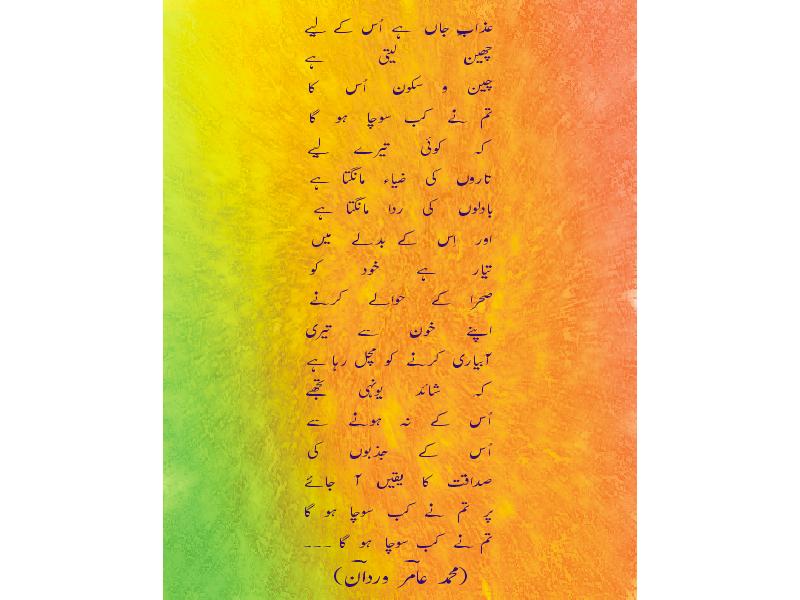 عذابِ جاں ہے اُس کے لیے
چھین لیتی ہے
چین و سکون اُس کا
تم نے کب سوچا ہو گا
کہ کوئی تیرے لیے
تاروں کی ضیاء مانگتا ہے
بادلوں کی ردا مانگتا ہے
اور اِس کے بدلے میں
تیار ہے خود کو
صحرا کے حوالے کرنے
اپنے خون سے تیری
آبیاری کرنے کو مچل رہا ہے
کہ شائد یونہی تجھے
اُس کے نہ ہونے سے
اُس کے جذبوں کی
صداقت کا یقیں آ جائے
پر تم نے کب سوچا ہو گا
تم نے کب سوچا ہو گا ---
(محمد عامر وردان)